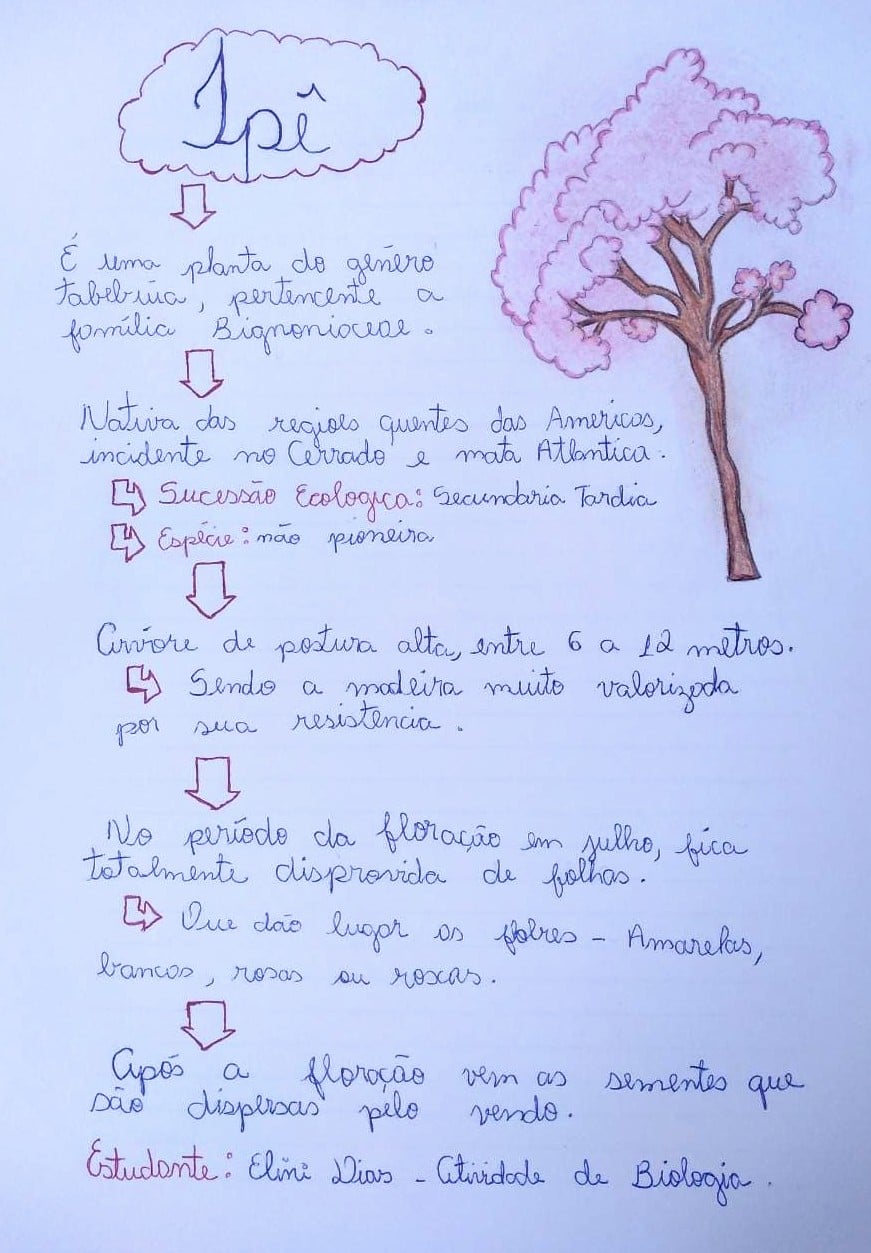 Ipê
É uma planta do gênero
tabebuia, pertencente a
família Bignoniaceae.
Nativa das regiões quentes das Americas,
incidente no Cerrado e mata Atlantica.
Sucessão Ecologica: Secundaria Tardia
Espécie: não pioneira
Arvóre de postura alta, entre 6 a 12 metros.
Sendo a madeira muito valorizada
por sua resistencia.
No período da floração em julho, fica
totalmente disprovida de folhas.
Que dão lugar as flores - Amarelas,
bancos, rosas ou roxas.
Após a floração vem as sementes que
são dispersas pelo vendo.
Estudante: Elini Dias - Atividade de Biologia.